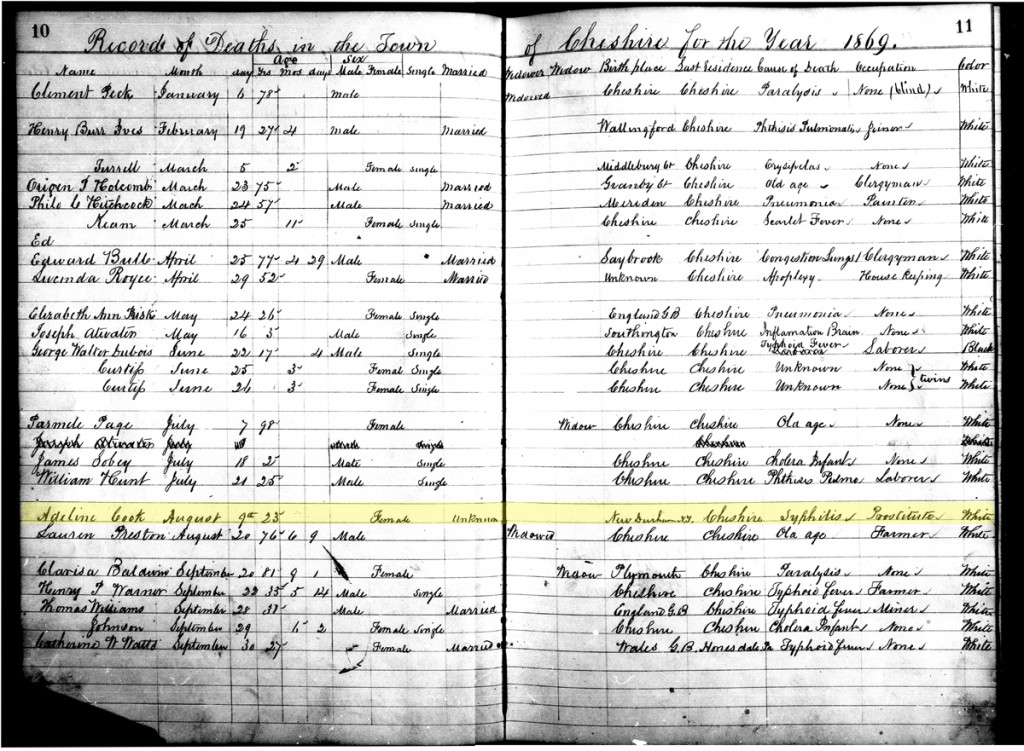 10 11
Record of Deaths in the Town of Cheshire for the Year 1869.
Age Sex
Name Month day Yrs mos days Male Female Single Married Widower Widow Birth place Last Residence Cause of Death Occupation Color
Widowed
Climent Peck January 6 78 Male Cheshire Cheshire Paralysis None (blind) White
Henry Burr Ives February 19 27 4 Male Married Wallingford Cheshire Phthisis Pulmonalis Joiner White
Turrell March 5 2 Female Single Middlebury Ct Cheshire Erysipelas None White
Origen P Holcomb March 23 75 Male Married Granby Ct Cheshire Old age Clergyman White
Philo C Hitchcock Mach 24 57 Male Married Meriden Cheshire Pneumonia Painter White
Keam March 25 11 Female Single Cheshire Cheshire Scarlet Fever None White
Ed
Edward Bull April 25 77 4 29 Male Married Saybrook Cheshire Congestion Lungs Clergyman White
Lucinda Royce April 29 52 Female Married Unknown Cheshire Apoplexy House Keeping White
Elizabeth Ann Frisk May 24 26 Female Single England G.B Cheshire Pneumonia None White
Joseph Atwater May 16 3 Male Single Southington Cheshire Inflamation Brain None White
Typhoid Fever
George Walter Dubois June 22 17 4 Male Single Cheshire Cheshire Laborer Black
Curtiss June 25 3 Femal Single Cheshire Cheshire Unknown None White
twins
Curtiss June 24 3 Female Single Cheshire Cheshire Unknown None White
Parmele Page July 7 98 Female Widow Cheshire Cheshire Old age None White
Joseph Atwater July Male Single Cheshire White
James Sobey July 18 2 Male Single Cheshire Cheshire Cholera Infant None White
William Hunt July 21 25 Male Single Cheshire Cheshire Phthisis Pulmo Laborer White
Adeline Cook August 9th 23 Female Unknown New Durham Cheshire Syphilis Prostitute White
Lauren Preston August 20 76 6 9 Male Widowed Cheshire Cheshire Old age Farmer White
Clarisa Baldwin September 20 81 9 1 Female Widow Plymouth Cheshire Paralysis None White
Henry P Warner September 22 35 5 14 Male Single Cheshire Cheshire Typhoid fever Farmer White
Thomas Williams September 28 Male Married England G.B Cheshire Typhoid fever Miner White
Johnson September 29 2 Female Single Cheshire Cheshire Cholera Infant None White
Catherine W Watts September 30 27 Female Married Wales G.B. Honesdale Pa Typhoid fever None White